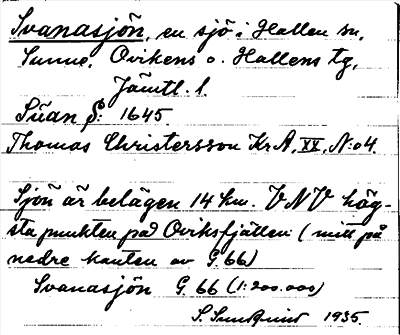 Svanasjön, en sjö i Hallen sn,
Sunne, Ovikens o. Hallens tg,
Jämtl. l.
1645.
Thomas Christersson Kr.A, XX, N:o 4.
Sjön är belägen 14 km. VNV hög-
sta punkten på Oviksfjällen (mitt på
nedre kanten av G. 66)
Svanasjön G. 66 (1:200.000)
1935.